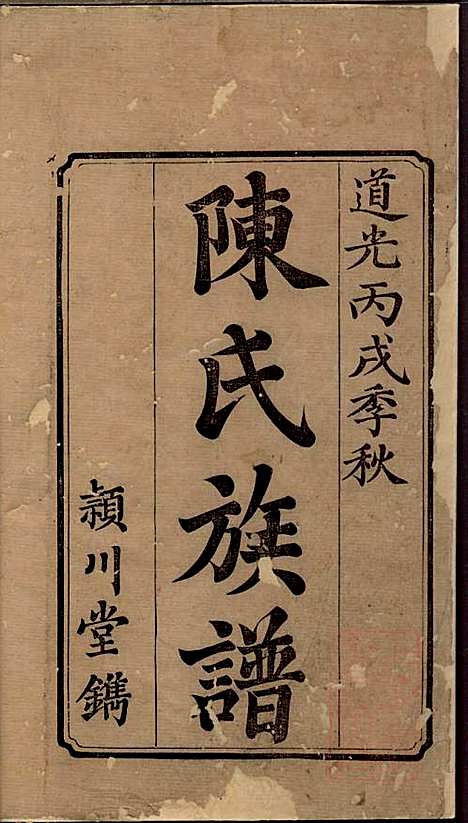 道光丙戌季秋
陳氏族譜
潁川堂鐫